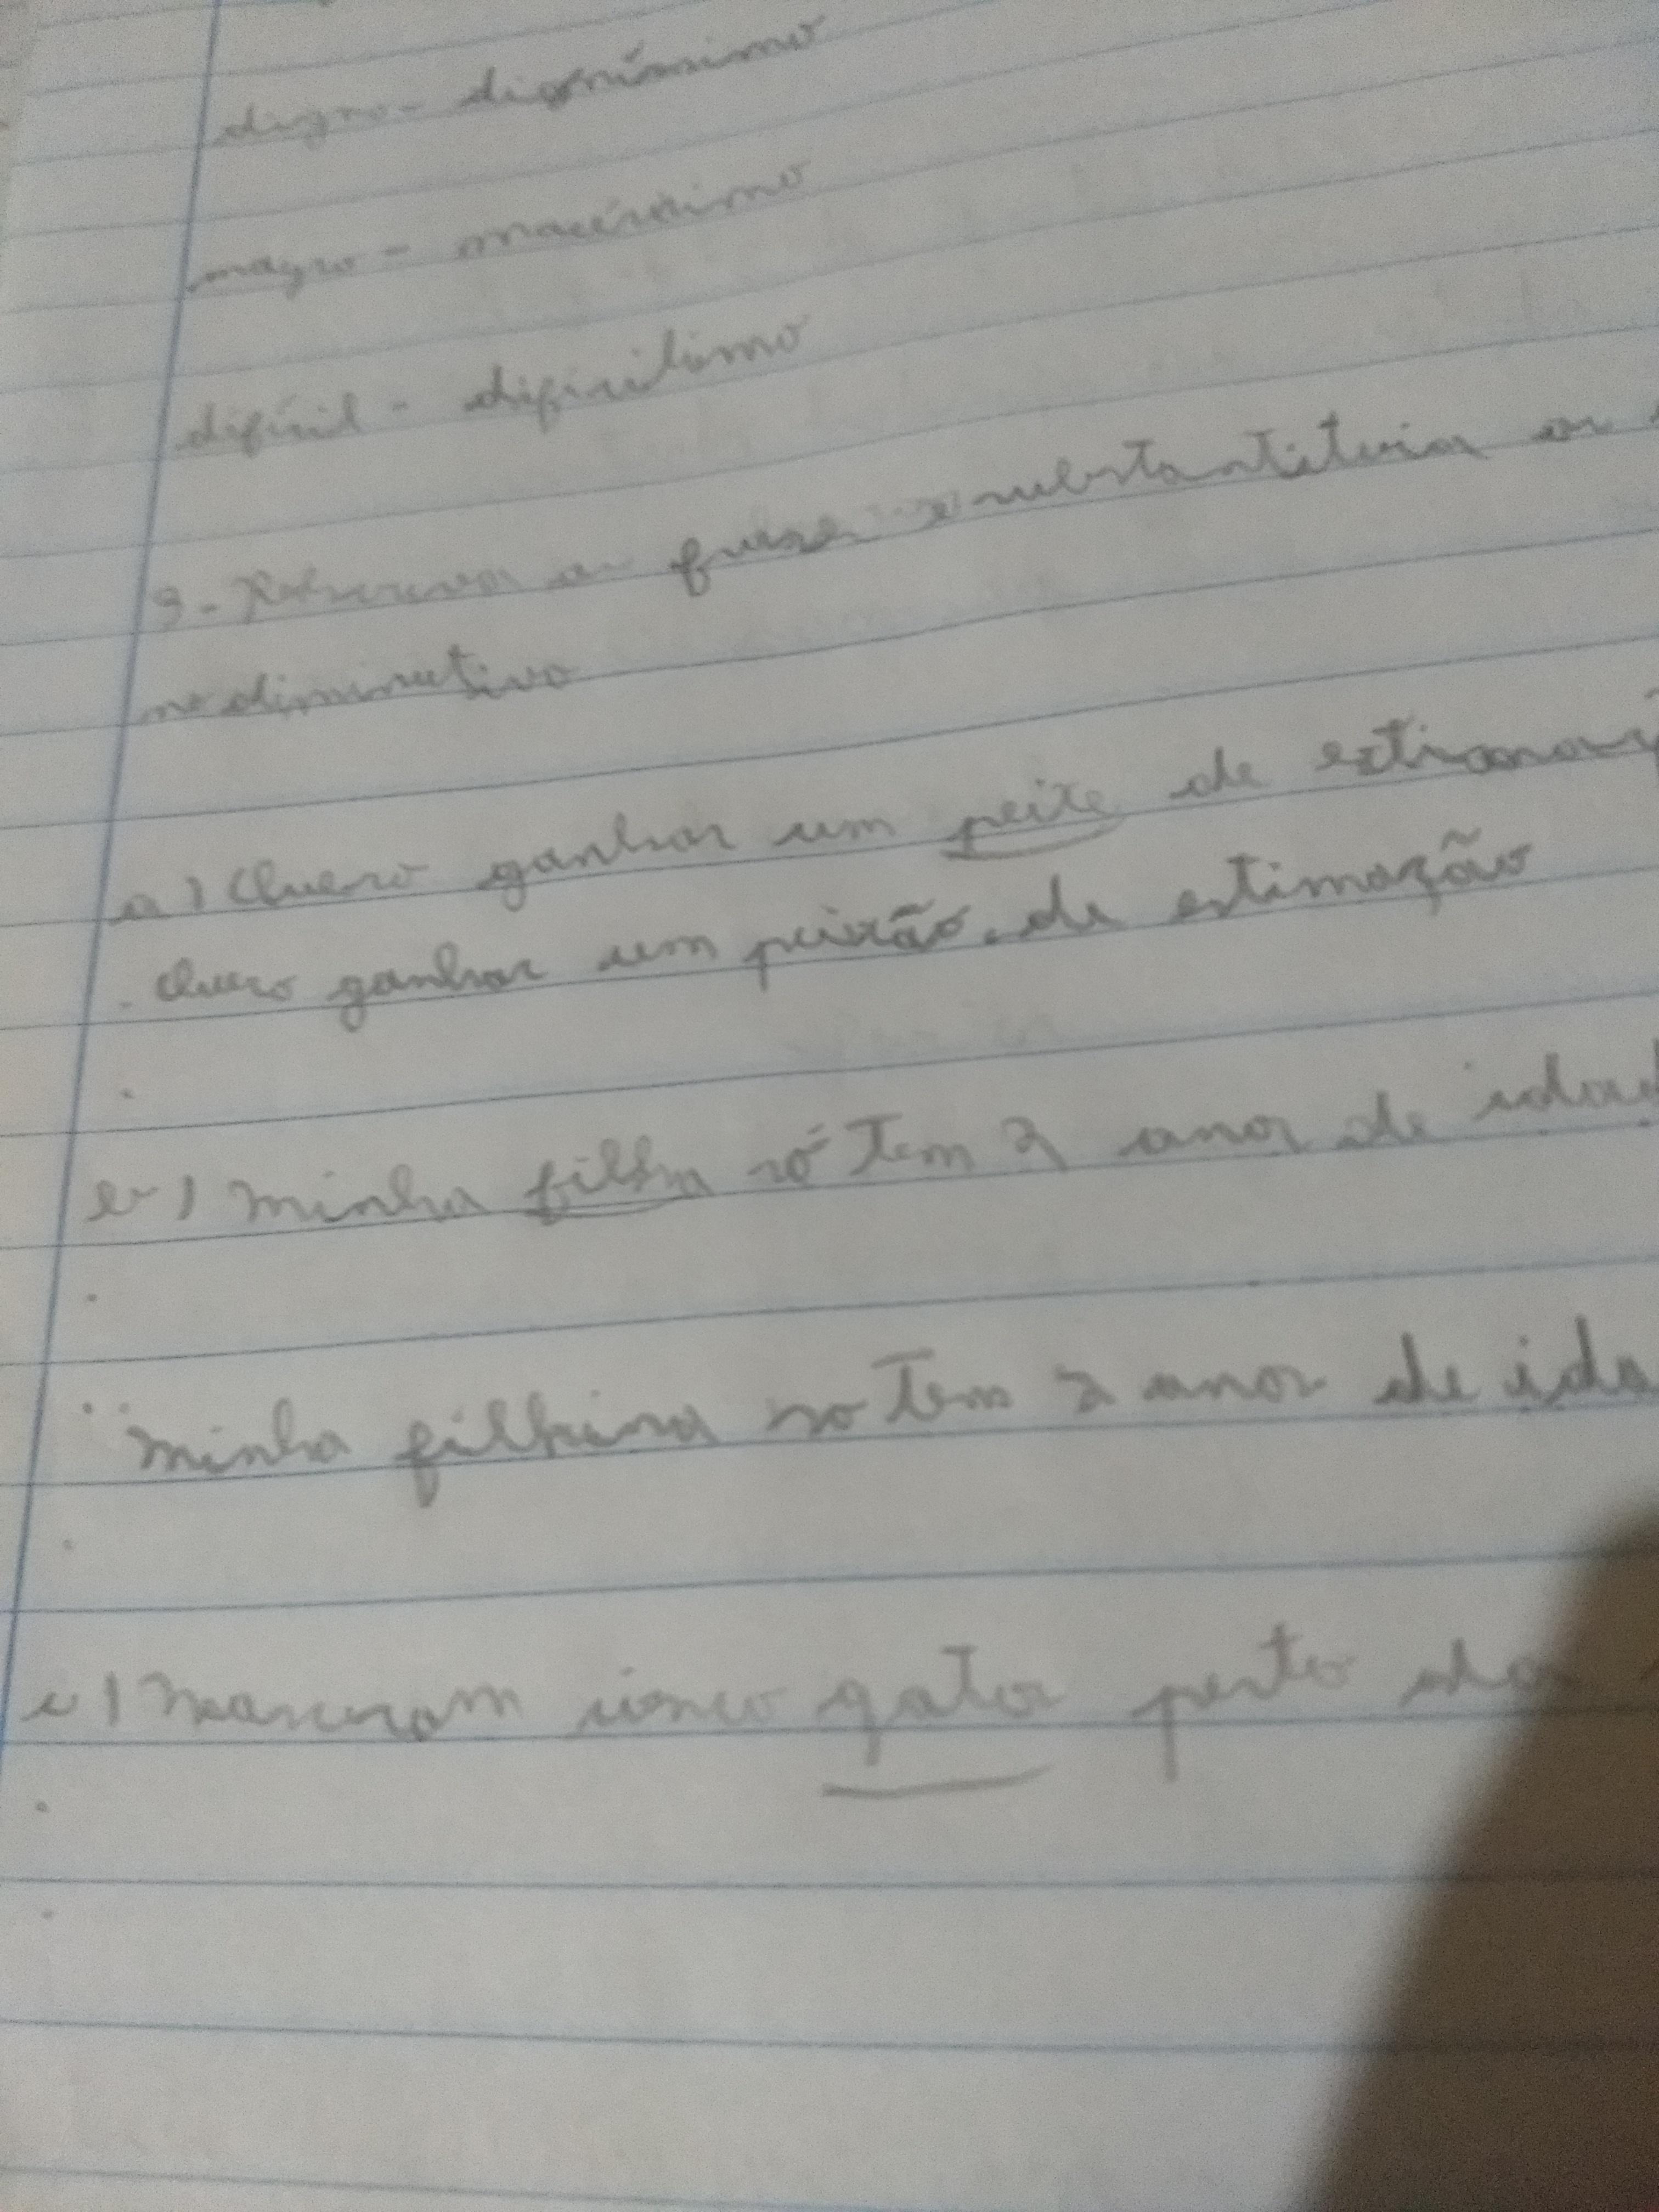 digno - digníssimo
magro - macérrimo
difícil - dificílimo
9 - Reescreva as frases e
no diminutivo
a) Quero ganhar um peixe de
. Quero ganhar um peixão. de estimação
b) Minha filha só tem 2 anos de
Minha filhina so tem 2 anos de
c) Nasceram cinco gatos perto da